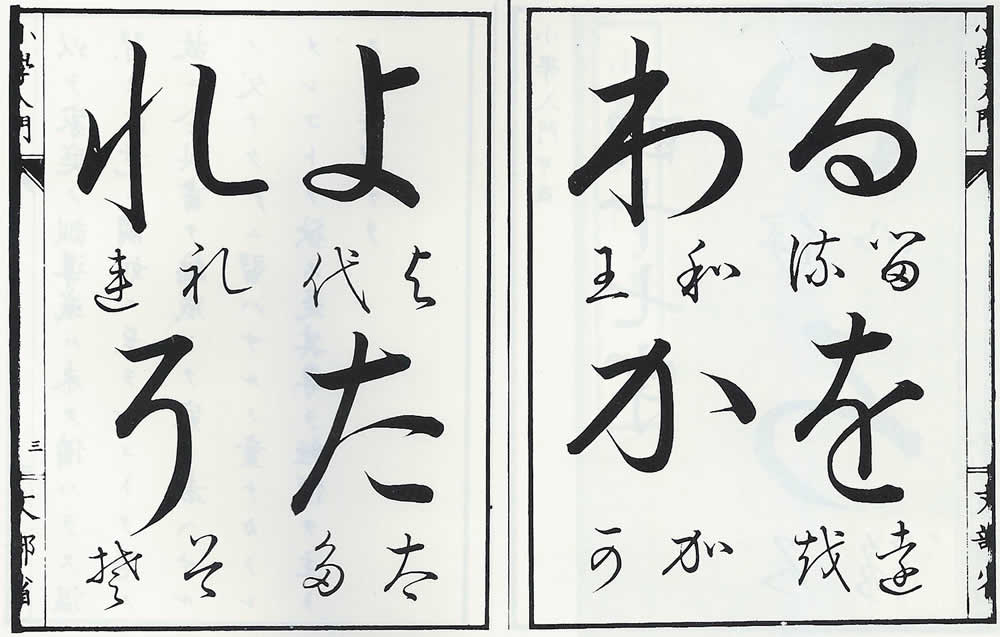 小學入門
文部省
る
留 流
を
遠 越
わ
和 王
か
加 可
よ
与 代
た
太 多
れ
礼 連
そ
曽 楚
小學入門
三
文部省